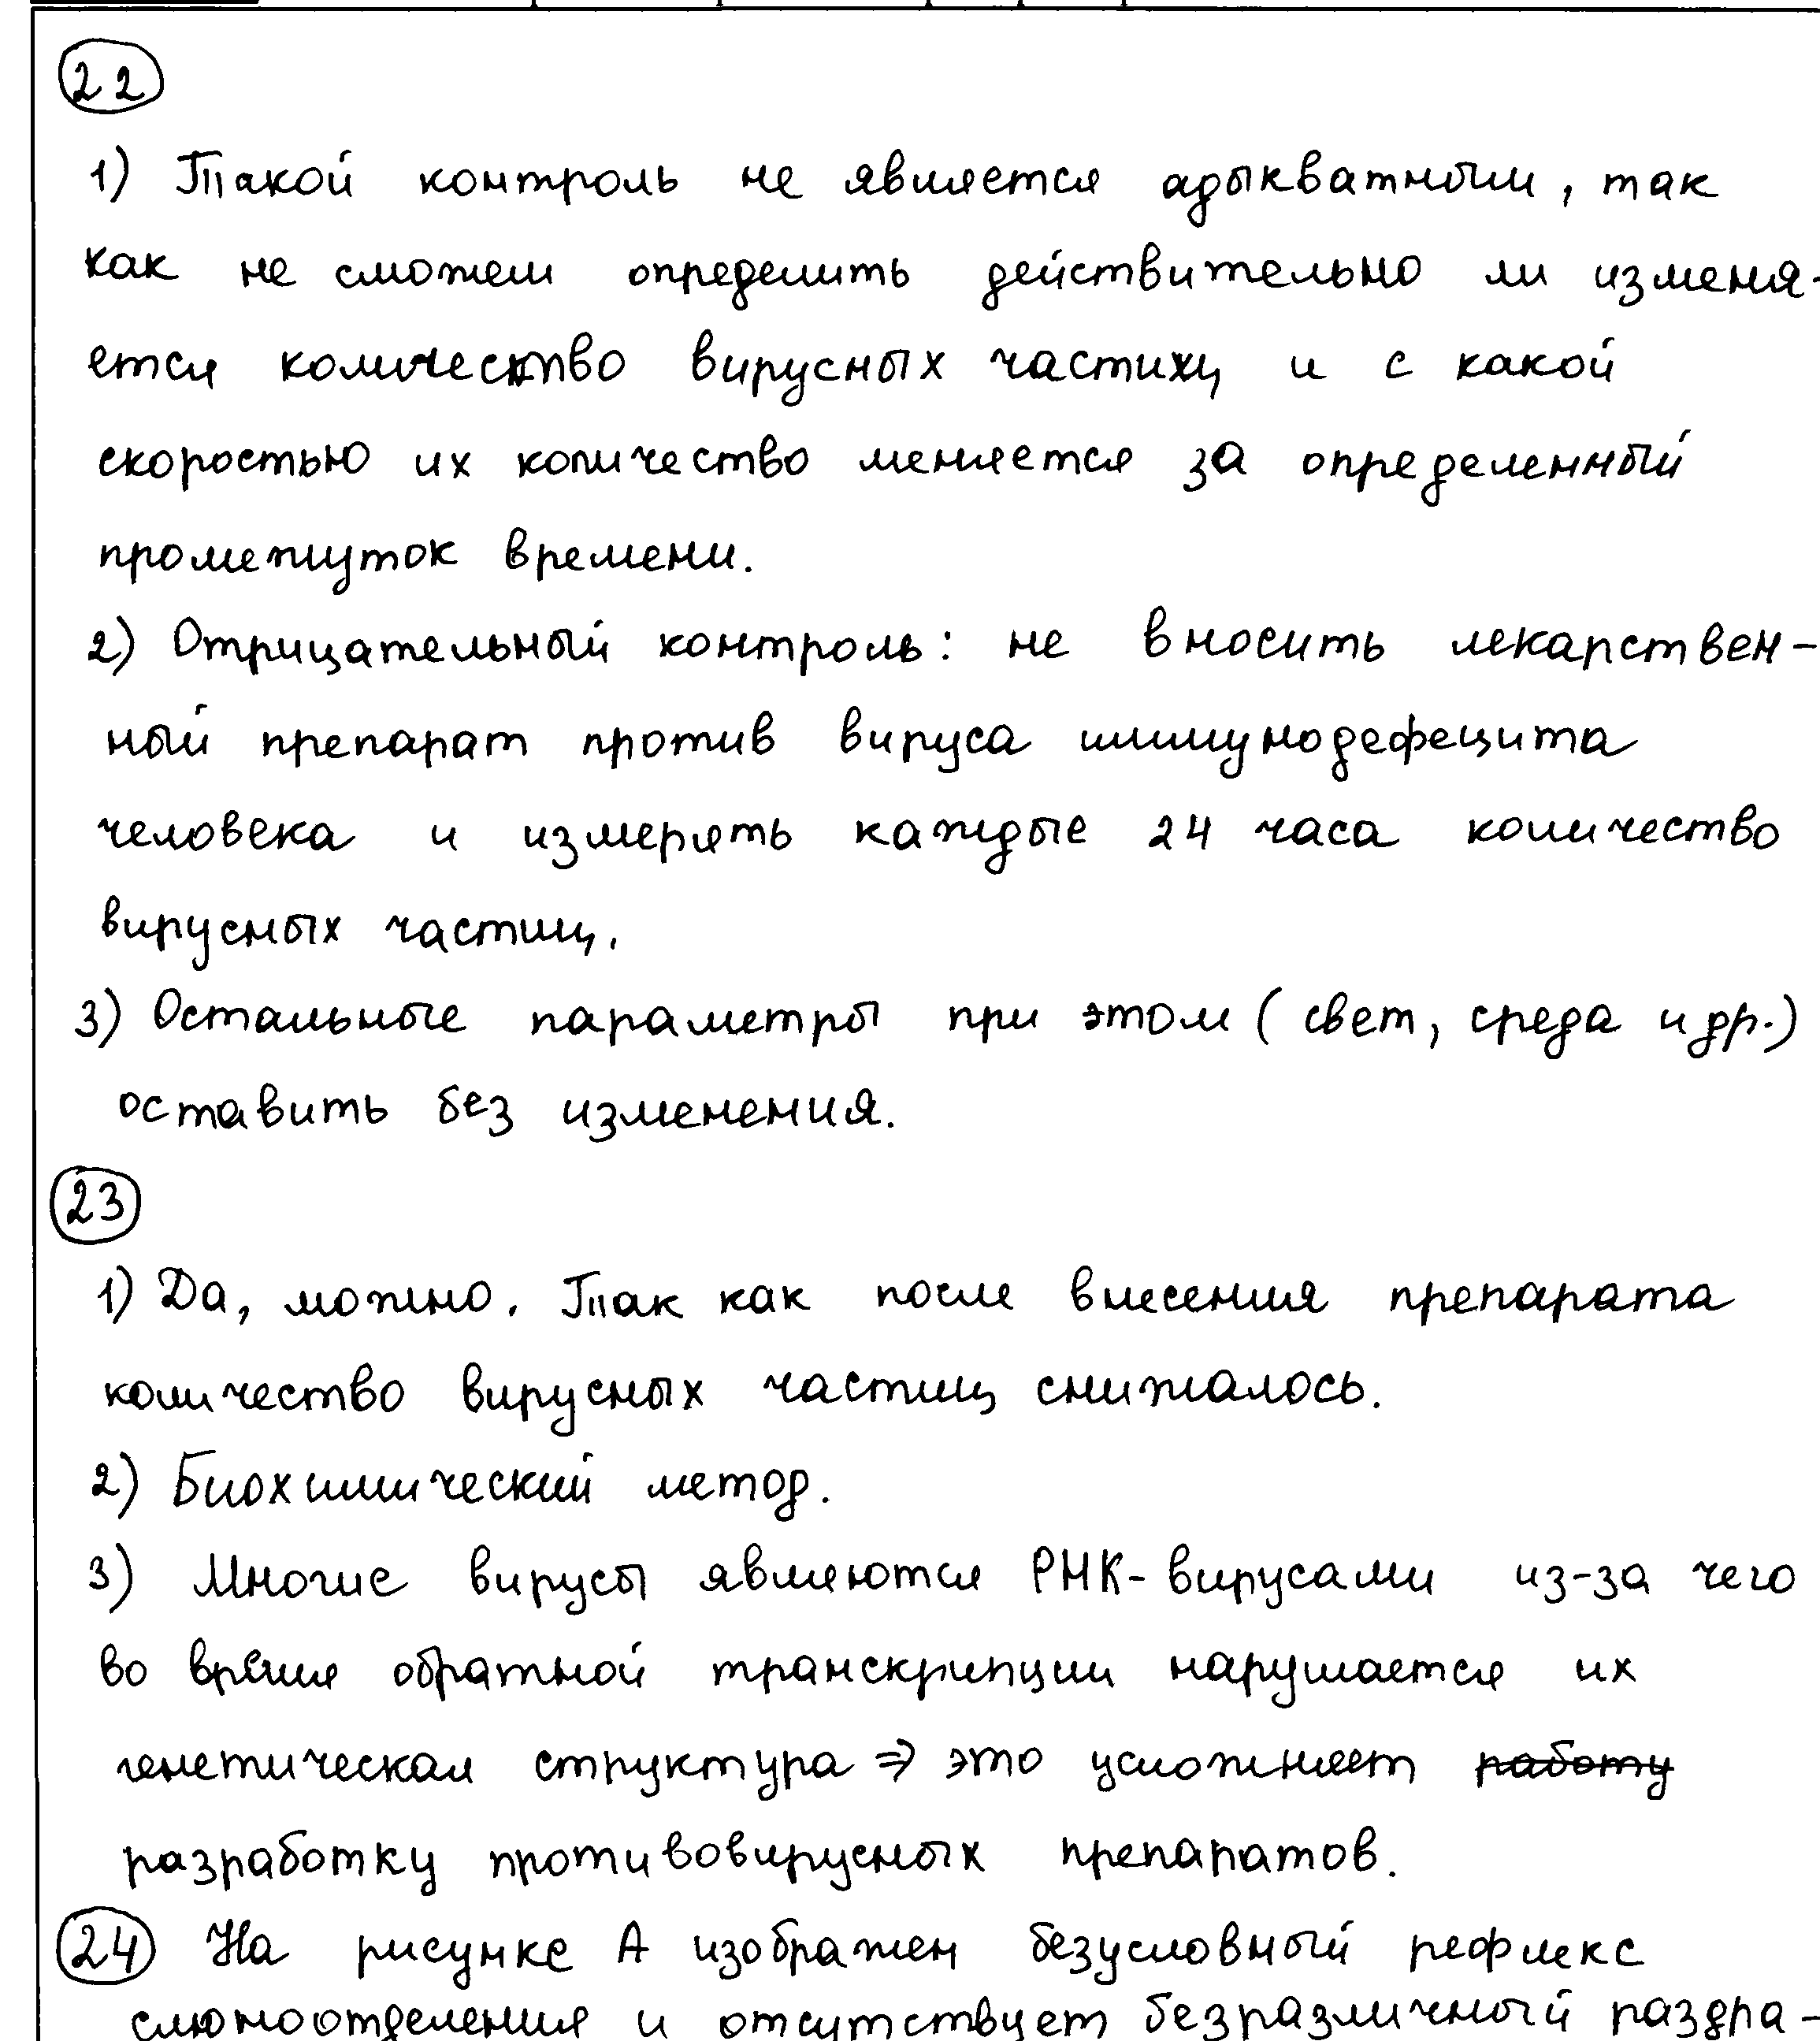 22
1) Такой контроль не является адыкватным, так
как не сможем определить действительно ли изменя-
ется количество вирусных частиц и с какой
скоростью их количество меняется за определенный
промежуток времени.
2) Отрицательный контроль: не вносить лекарствен-
ный препарат против вируса иммунодефецита
человека и измерять каждые 24 часа количество
вирусных частиц.
3) Остальные параметры при этом (свет, среда и др.)
оставить без изменения.
23
1) Да, можно. Так как после внесения препарата
количество вирусных частиц снижалось.
2) Биохимический метод.
3) Многие вирусы являются РНК-вирусами из-за чего
во время обратной транскрипции нарушается их
генетическая структура ⇒ это усложняет работу
разработку противовирусных препаратов.
24 На рисунке А изображен безусловный рефлекс
слюноотделения и отсутствует безразличный раздра-